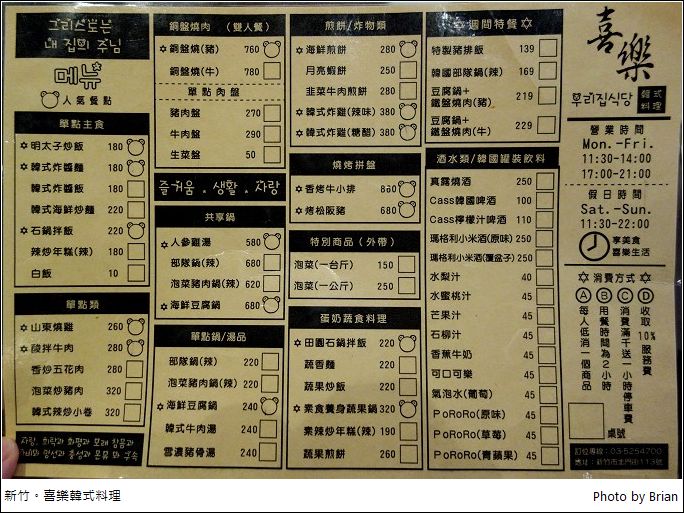 그리스도는
내 집의 주님
메뉴
人氣餐點
單點主食
✡ 明太子炒飯 180
✡ 韓式炸醬麵 180
韓式炸醬飯 180
韓式海鮮炒麵 220
✡ 石鍋拌飯 220
辣炒年糕(辣) 180
白飯 10
單點類
✡ 山東燒雞 260
✡ 酸拌牛肉 280
香炒五花肉 280
泡菜炒豬肉 320
韓式辣炒小卷 320
사랑, 희락과 화평과 오래 참음과
자비와 양선과 충성과 온유 와 절제
銅盤燒肉 (雙人餐)
✡ 銅盤燒(豬) 760
銅盤燒(牛) 780
單點肉盤
豬肉盤 270
牛肉盤 290
生菜盤 50
즐거움 . 생활 . 사랑
共享鍋
✡ 人參雞湯 580
部隊鍋(辣) 580
泡菜豬肉鍋(辣) 620
✡ 海鮮豆腐鍋 680
單點鍋/湯品
部隊鍋(辣) 220
泡菜豬肉鍋(辣) 220
✡ 海鮮豆腐鍋 240
韓式牛肉湯 240
雪濃豬骨湯 240
煎餅/炸物類
✡ 海鮮煎餅 280
月亮蝦餅 250
韭菜牛肉煎餅 280
✡ 韓式炸雞(辣味) 380
✡ 韓式炸雞(糖醋) 380
燒烤拼盤
✡ 香烤牛小排 880
✡ 烤松阪豬 680
特別商品(外帶)
泡菜(一台斤) 150
泡菜(一公斤) 250
蛋奶蔬食料理
✡ 田園石鍋拌飯 220
蔬香麵 220
蔬果炒飯 220
✡ 素食養身蔬果鍋 320
素辣炒年糕(辣) 190
蔬果煎餅 260
✡週間特餐✡
特製豬排飯 139
韓國部隊鍋(辣) 169
豆腐鍋+
鐵盤燒肉(豬) 219
豆腐鍋+
鐵盤燒肉(牛) 229
酒水類/韓國罐裝飲料
真露燒酒 250
Cass韓國啤酒 100
Cass檸檬汁啤酒 110
瑪格利小米酒(原味) 250
瑪格利小米酒(覆盆子) 250
水梨汁 45
水蜜桃汁 45
芒果汁 45
石柳汁 45
香蕉牛奶 45
可口可樂 45
氣泡水(葡萄) 45
PoRoRo(原味) 45
PoRoRo(草莓) 45
PoRoRo(青蘋果) 45
喜樂
우리집식당
韓式
料理
營業時間
Mon.-Fri.
11:30-14:00
17:00-21:00
假日時間
Sat.-Sun.
11:30-22:00
享美食
喜樂生活
✡ 消費方式 ✡
A 每人低消一個商品
B 用餐時間為2小時
C 消費滿千送一小時停車費
D 收取10%服務費
桌號
訂位專線:03-5254700
地址:新竹市北門街113號
新竹。喜樂韓式料理
Photo by Brian